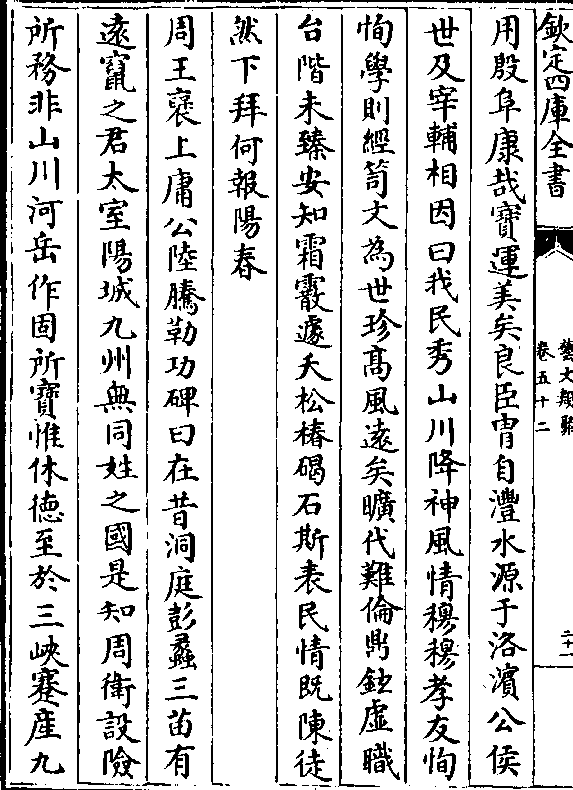 欽定四庫全書
藝文類聚
卷五十二
二十一
用殷阜康哉寶運美矣良臣胄自灃水源于洛濱公侯
世及宰輔相因曰我民秀山川降神風情穆穆孝友恂
恂學則經笥文為世珍高風遠矣曠代難倫鼎鉉虛職
台階未臻安知霜霰遽夭松椿碣石斯表民情既陳徒
然下拜何報陽春
周王襃上庸公陸騰勒功碑曰在昔洞庭彭蠡三苗有
遠竄之君太室陽城九州無同姓之國是知周衛設險
所務非山川河岳作固所寶惟休徳至於三峽蹇産九